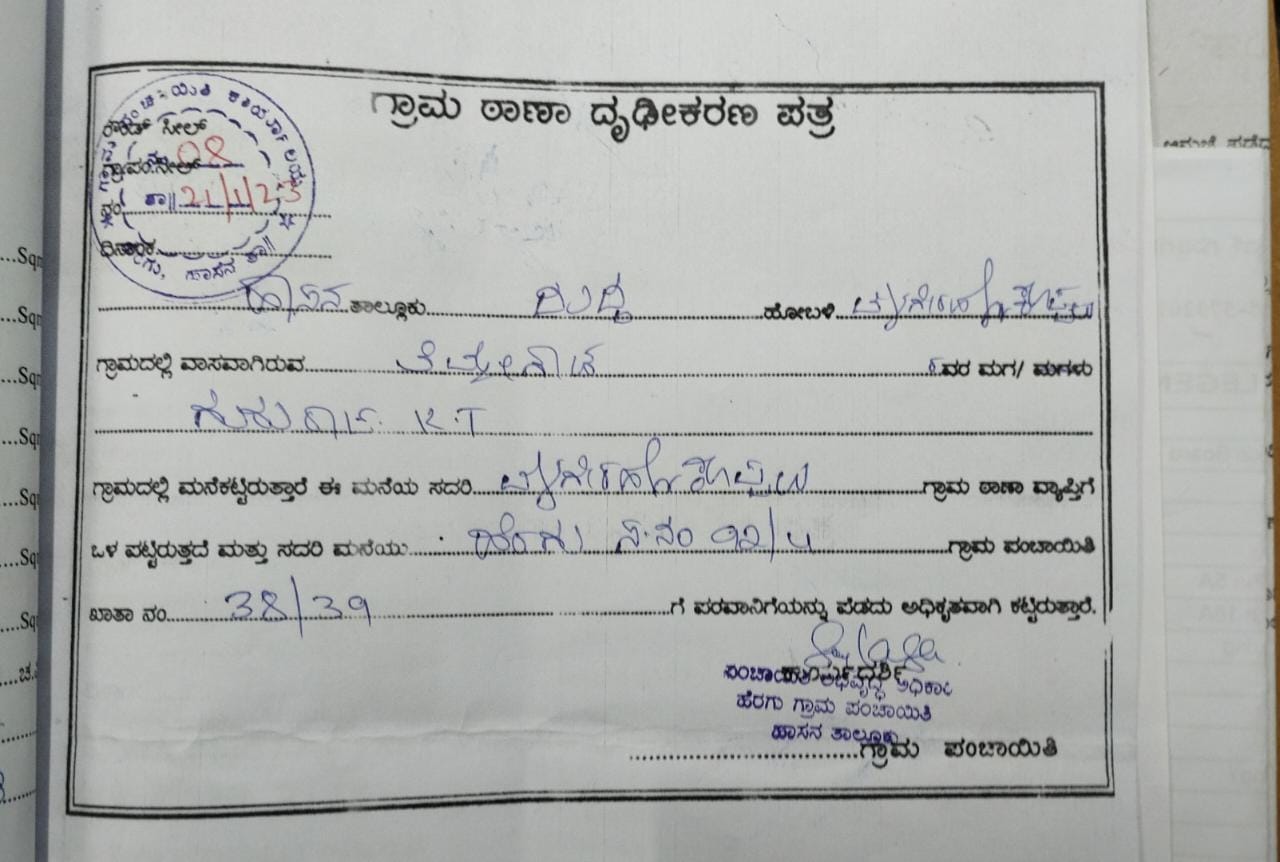 ಗ್ರಾಮ ಠಾಣಾ ದೃಢೀಕರಣ ಪತ್ರ
ರೌಂಡ್ ಸೀಲ್
ಗ್ರಾ.ಪಂ.ಸೀಲ್ 08
ನಂ 21/1/23
ದಿನಾಂಕ
ಹಾಸನ ತಾಲ್ಲೂಕು ದುದ್ದ ಹೋಬಳಿ
ಗ್ರಾಮದಲ್ಲಿ ವಾಸವಾಗಿರುವ ರವರ ಮಗ/ ಮಗಳು
ಗುರುರಾಜ್. K.T
ಗ್ರಾಮದಲ್ಲಿ ಮನೆಕಟ್ಟಿರುತ್ತಾರೆ ಈ ಮನೆಯ ಸದರಿ ಗ್ರಾಮ ಠಾಣಾ ವ್ಯಾಪ್ತಿಗೆ
ಒಳ ಪಟ್ಟಿರುತ್ತದೆ ಮತ್ತು ಸದರಿ ಮನೆಯು ಹೆರಗು ಸ.ನಂ ಗ್ರಾಮ ಪಂಚಾಯಿತಿ
ಖಾತಾ ನಂ 38/39 ಗೆ ಪರವಾನಿಗೆಯನ್ನು ಪಡೆದು ಅಧಿಕೃತವಾಗಿ ಕಟ್ಟಿರುತ್ತಾರೆ.
ಕಾರ್ಯದರ್ಶಿ
ಪಂಚಾಯಿತಿ ಅಭಿವೃದ್ಧಿ ಅಧಿಕಾರಿ
ಹೆರಗು ಗ್ರಾಮ ಪಂಚಾಯಿತಿ
ಹಾಸನ ತಾಲ್ಲೂಕು
ಗ್ರಾಮ ಪಂಚಾಯಿತಿ